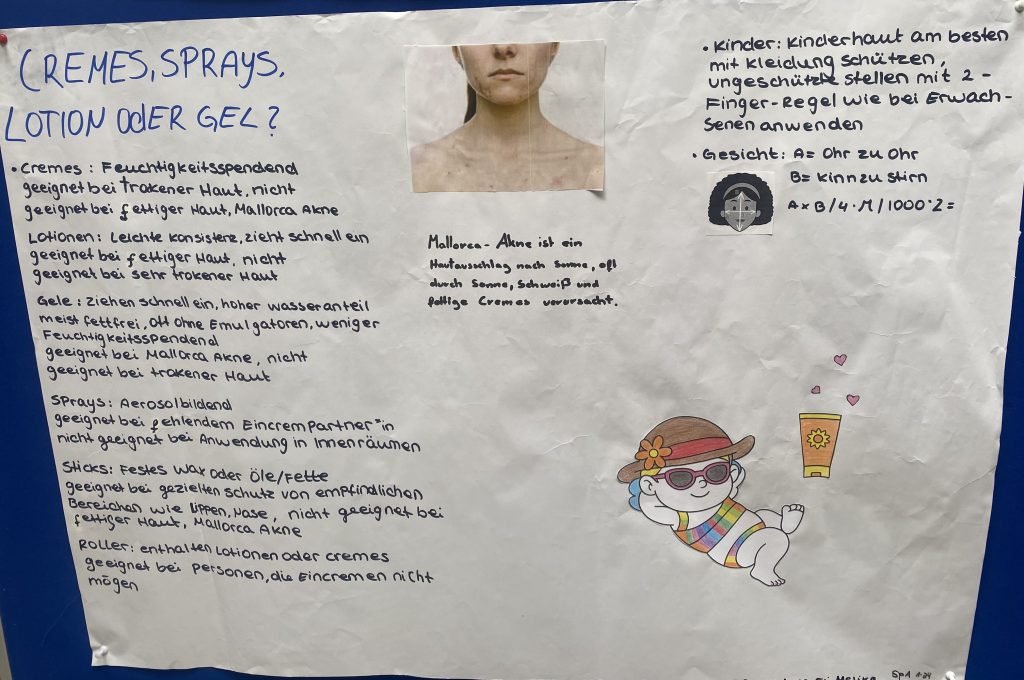 CREMES, SPRAYS,
LOTION ODER GEL?
• Cremes: Feuchtigkeitsspendend
geeignet bei trokener Haut, nicht
geeignet bei fettiger Haut, Mallorca Akne
Lotionen: Leichte Konsistenz, zieht schnell ein
geeignet bei fettiger Haut, nicht
geeignet bei sehr trokener Haut
Gele: ziehen schnell ein, hoher wasseranteil
meist fettfrei, oft ohne Emulgatoren, weniger
Feuchtigkeitsspendend
geeignet bei Mallorca Akne, nicht
geeignet bei trokener Haut
Sprays: Aerosolbildend
geeignet bei fehlendem Eincrempartner*in
nicht geeignet bei Anwendung in Innenräumen
Sticks: Festes Wax oder Öle/Fette
geeignet bei gezielten Schutz von empfindlichen
Bereichen wie Lippen, Nase, nicht geeignet bei
fettiger Haut, Mallorca Akne
Roller: enthalten Lotionen oder cremes
geeignet bei personen, die Eincremen nicht
mögen
Mallorca-Akne ist ein
Hautausschlag nach Sonne, oft
durch Sonne, Schweiß und
fettige Cremes verursacht.
• Kinder: Kinderhaut am besten
mit Kleidung schützen,
ungeschützte stellen mit 2-
Finger-Regel wie bei Erwach-
senen anwenden
• Gesicht: A= Ohr zu Ohr
B= Kinn zu Stirn
A×B/4·π/1000*2=
Melika